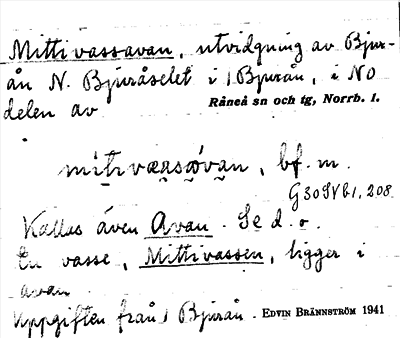 Mittivassavan, utvidgning av Bjur-
ån N. Bjuråselet i Bjurån, i NO
delen av Råneå sn och tg, Norrb. l.
bf. m.
G30SVb1, 208.
Kallas även Avan. Se d. o.
En vasse, Mittivassen, ligger i
avan.
Uppgiften från Bjurån. EDVIN BRÄNNSTRÖM 1941